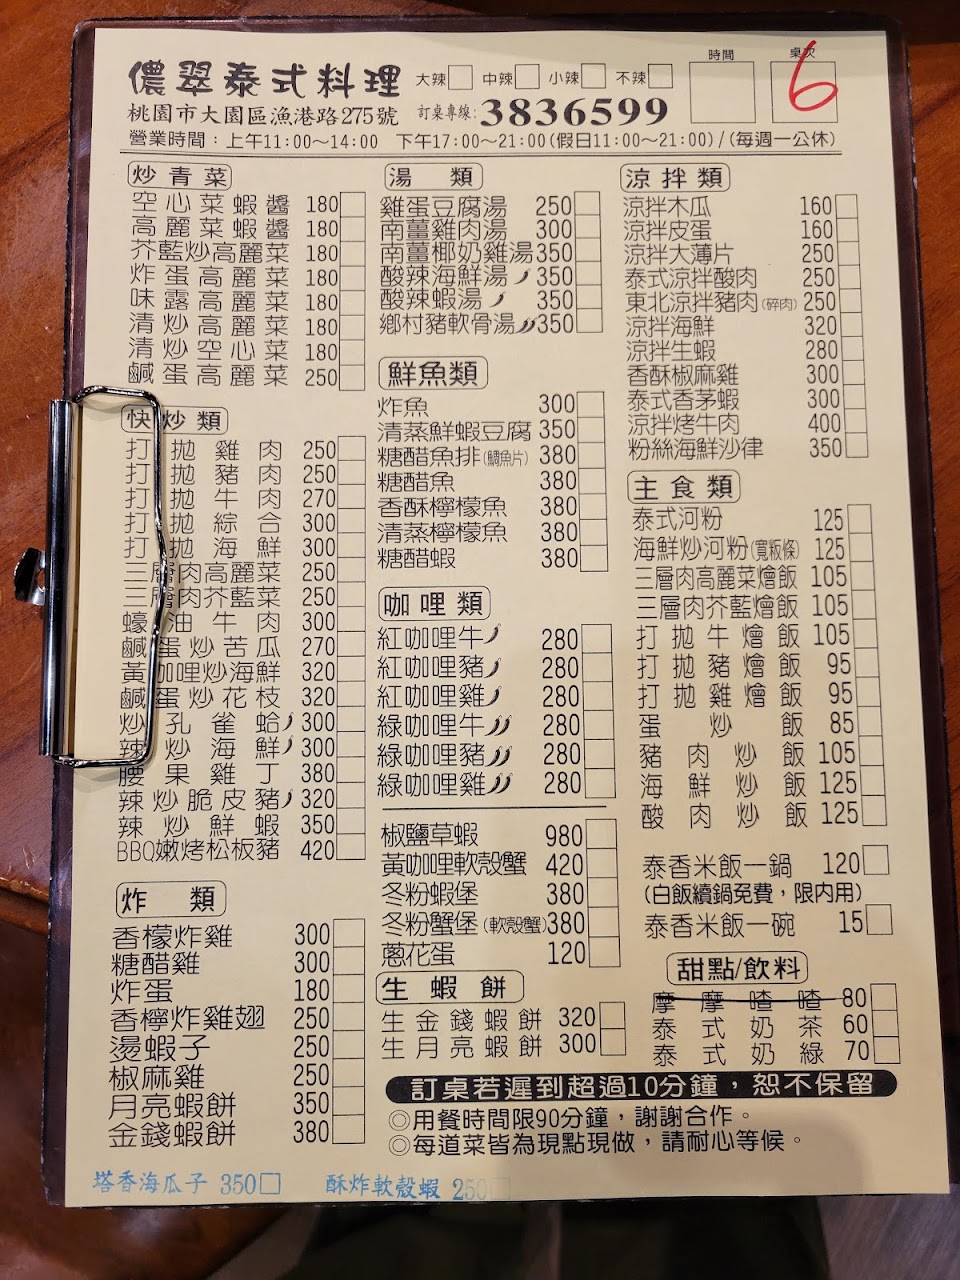 儂翠泰式料理 大辣 中辣 小辣 不辣 時間 桌次
桃園市大園區漁港路275號 訂桌專線: 3836599 6
營業時間：上午11:00～14:00 下午17:00～21:00(假日11:00～21:00)/(每週一公休)
炒青菜
空心菜蝦醬 180
高麗菜蝦醬 180
芥藍炒高麗菜 180
炸蛋高麗菜 180
味露高麗菜 180
清炒高麗菜 180
清炒空心菜 180
鹹蛋高麗菜 250
快炒類
打拋雞肉 250
打拋豬肉 250
打拋牛肉 270
打拋綜合 300
打拋海鮮 300
三層肉高麗菜 250
三層肉芥藍菜 250
蠔油牛肉 300
鹹蛋炒苦瓜 270
黃咖哩炒海鮮 320
鹹蛋炒花枝 320
炒孔雀蛤 300
辣炒海鮮 300
腰果雞丁 380
辣炒脆皮豬 320
辣炒鮮蝦 350
BBQ嫩烤松板豬 420
炸類
香檬炸雞 300
糖醋雞 300
炸蛋 180
香檸炸雞翅 250
燙蝦子 250
椒麻雞 250
月亮蝦餅 350
金錢蝦餅 380
湯類
雞蛋豆腐湯 250
南薑雞肉湯 300
南薑椰奶雞湯 350
酸辣海鮮湯 350
酸辣蝦湯 350
鄉村豬軟骨湯 350
鮮魚類
炸魚 300
清蒸鮮蝦豆腐 350
糖醋魚排(鯛魚片) 380
糖醋魚 380
香酥檸檬魚 380
清蒸檸檬魚 380
糖醋蝦 380
咖哩類
紅咖哩牛 280
紅咖哩豬 280
紅咖哩雞 280
綠咖哩牛 280
綠咖哩豬 280
綠咖哩雞 280
椒鹽草蝦 980
黃咖哩軟殼蟹 420
冬粉蝦堡 380
冬粉蟹堡(軟殼蟹) 380
蔥花蛋 120
生蝦餅
生金錢蝦餅 320
生月亮蝦餅 300
涼拌類
涼拌木瓜 160
涼拌皮蛋 160
涼拌大薄片 250
泰式涼拌酸肉 250
東北涼拌豬肉(碎肉) 250
涼拌海鮮 320
涼拌生蝦 280
香酥椒麻雞 300
泰式香茅蝦 300
涼拌烤牛肉 400
粉絲海鮮沙律 350
主食類
泰式河粉 125
海鮮炒河粉(寬粄條) 125
三層肉高麗菜燴飯 105
三層肉芥藍燴飯 105
打拋牛燴飯 105
打拋豬燴飯 95
打拋雞燴飯 95
蛋炒飯 85
豬肉炒飯 105
海鮮炒飯 125
酸肉炒飯 125
泰香米飯一鍋 120
(白飯續鍋免費，限內用)
泰香米飯一碗 15
甜點/飲料
摩摩喳喳 80
泰式奶茶 60
泰式奶綠 70
訂桌若遲到超過10分鐘，恕不保留
◎用餐時間限90分鐘，謝謝合作。
◎每道菜皆為現點現做，請耐心等候。
塔香海瓜子 350 酥炸軟殼蝦 250